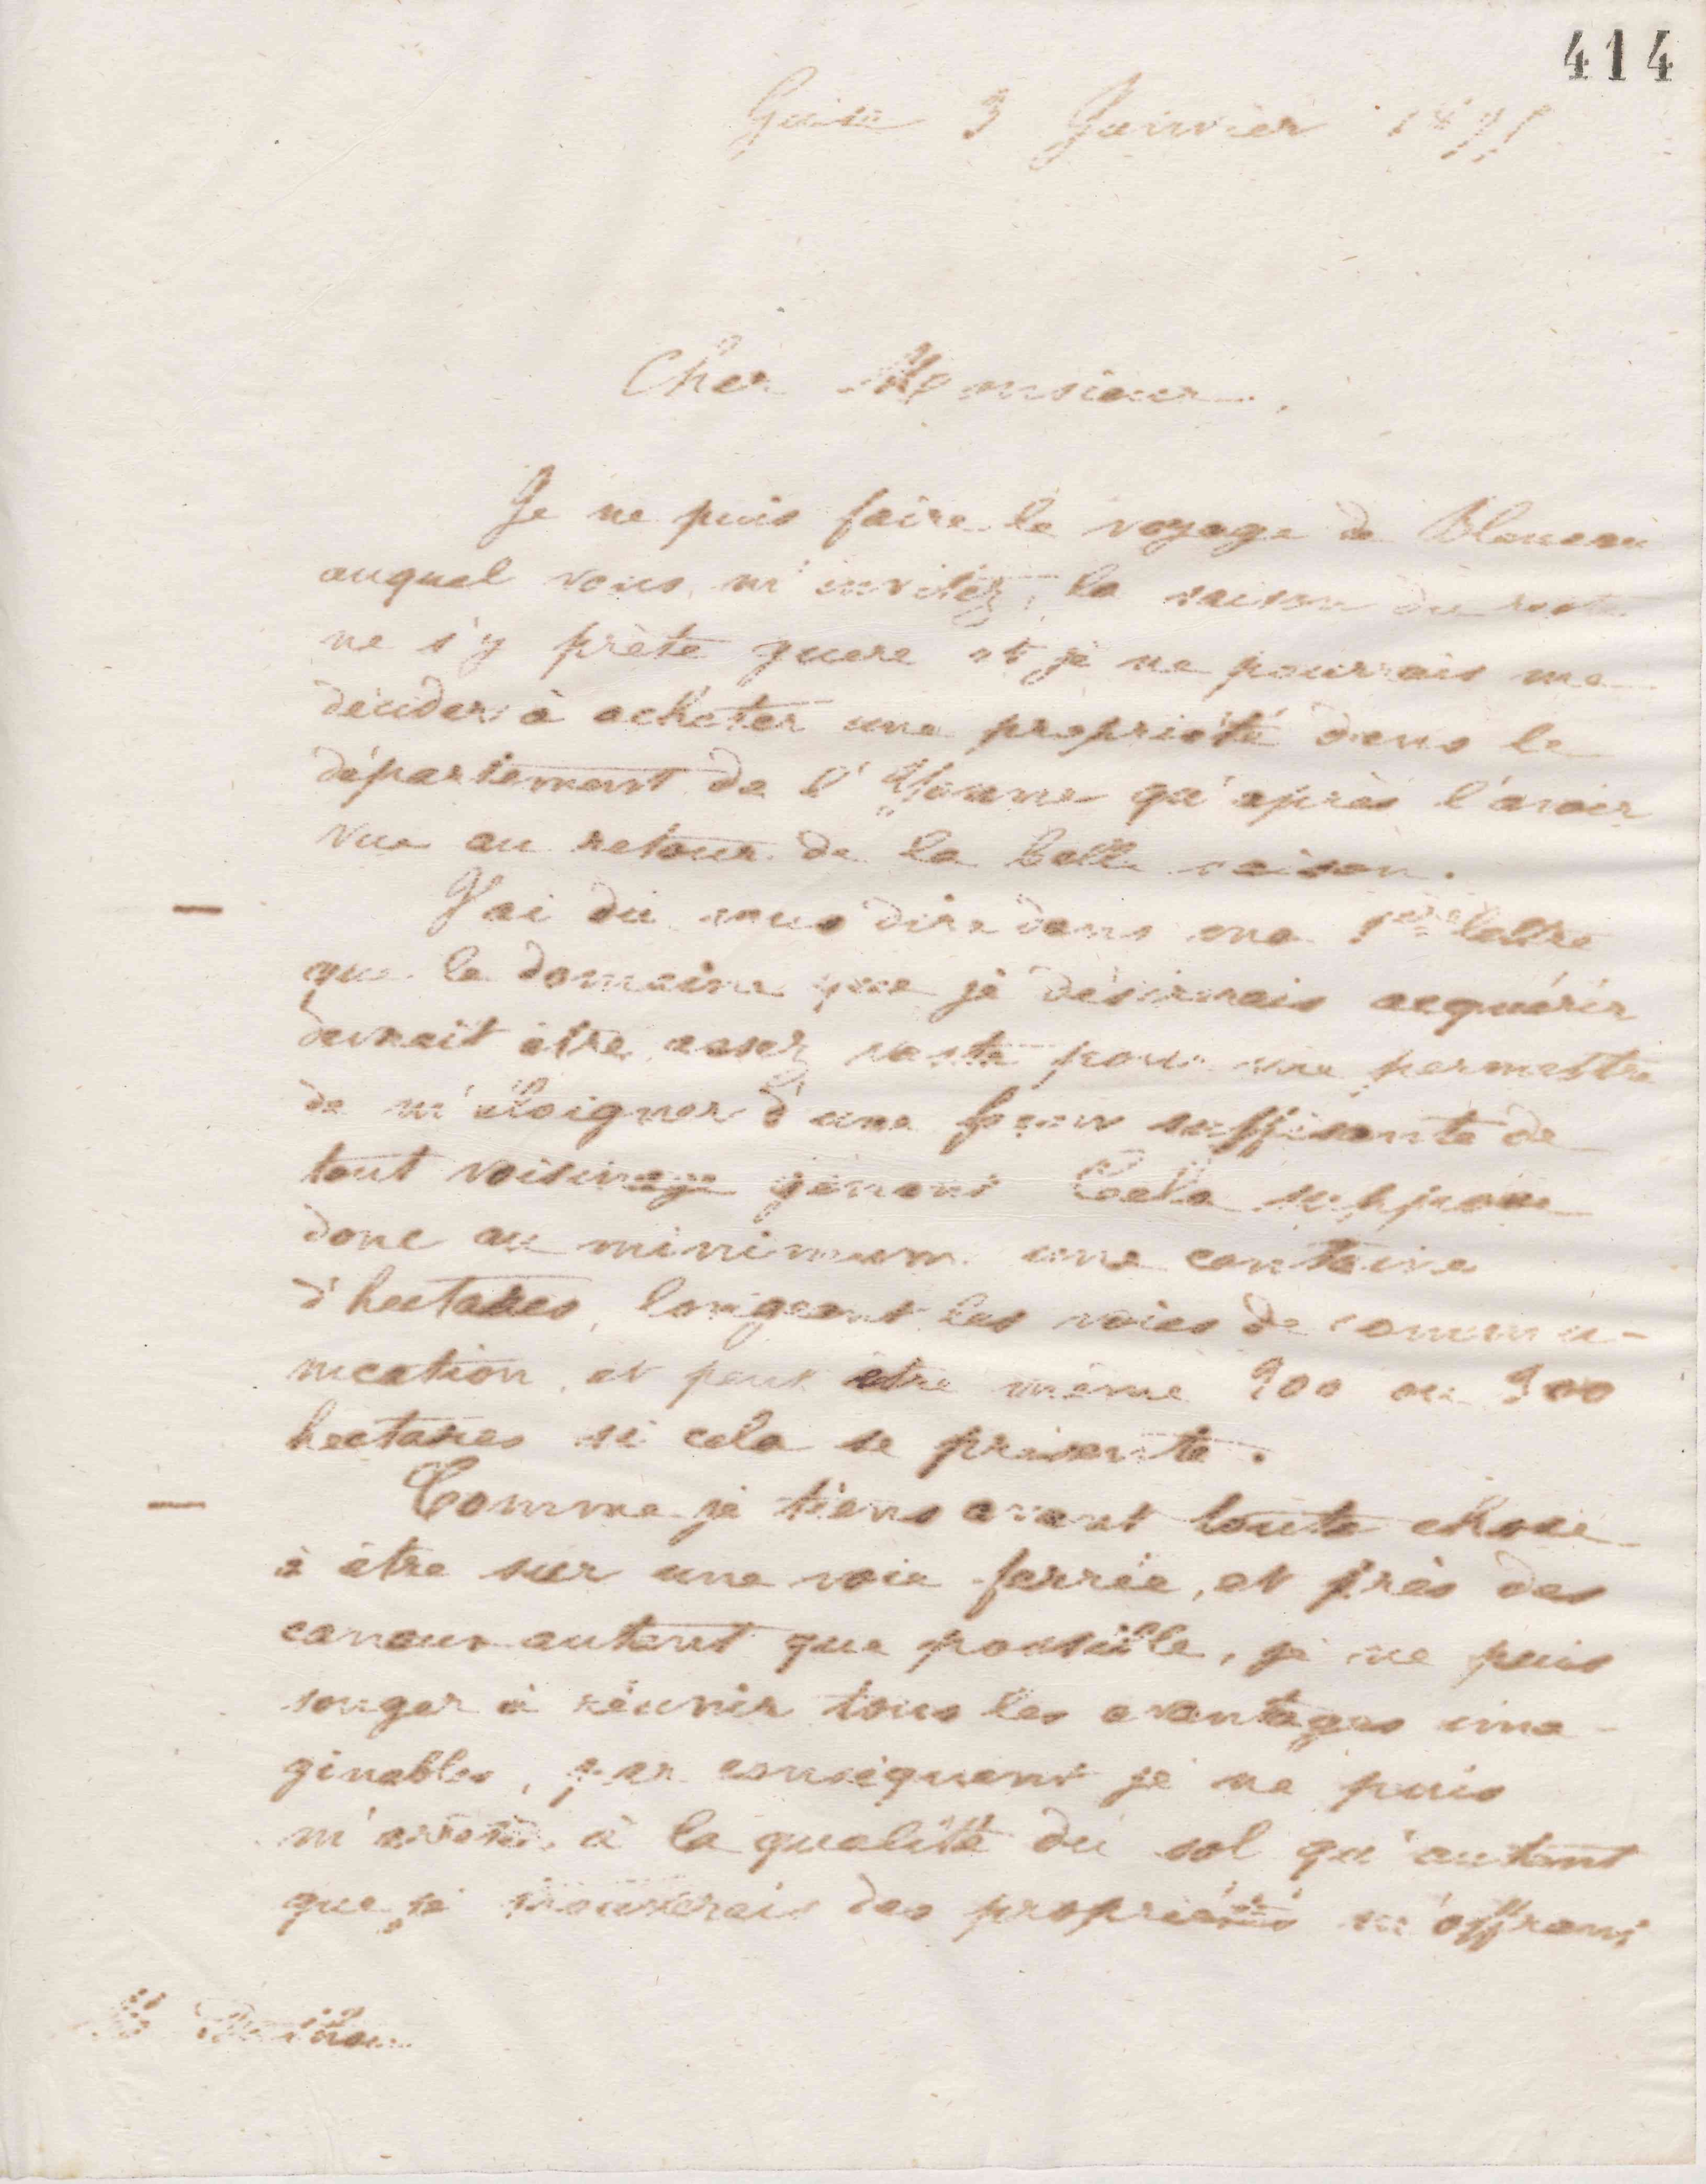 414
Guise 3 Janvier 1871
Cher Monsieur.
Je ne puis faire le voyage de Bleneau
auquel vous m'invitez, la saison du reste
ne s'y prête guere et je ne pourrais me
décider à acheter une propriété dans le
département de l'Yonne qu'après l'avoir
vue au retour de la belle saison.
J'ai dû vous dire dans ma 1ère lettre
que le domaine que je désirerais acquérir
devrait être assez vaste pour me permettre
de m'éloigner d'une façon suffisante de
tout voisinage gênant Cela suppose
donc au minimum une centaine
d'hectares, longeant les voies de commu-
nication, et peut être même 200 ou 300
hectares si cela se présente.
Comme je tiens avant toute chose
à être sur une voie ferrée, et près des
canaux autant que possible, je ne puis
songer à réunir tous les avantages ima-
ginables, par conséquent je ne puis
m'arrêter à la qualité du sol qu'autant
que je trouverais des propriétés m'offrant
M